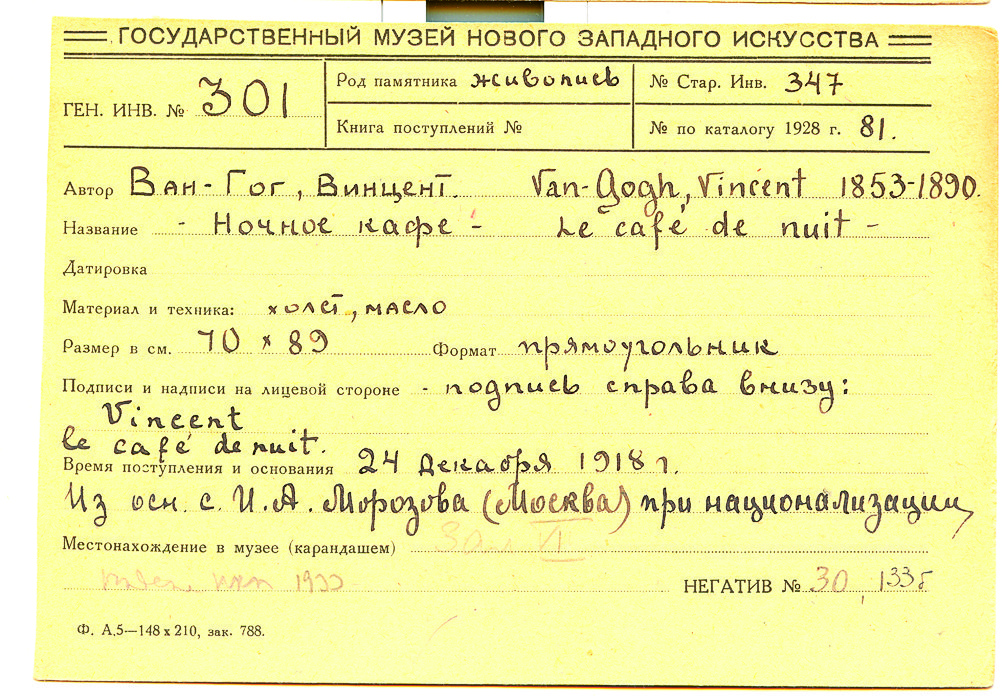 ГОСУДАРСТВЕННЫЙ МУЗЕЙ НОВОГО ЗАПАДНОГО ИСКУССТВА
ГЕН. ИНВ. № 301
Род памятника живопись
№ Стар. Инв. 347
Книга поступлений №
№ по каталогу 1928 г. 81.
Автор Ван-Гог, Винцент. Van-Gogh, Vincent 1853-1890.
Название - Ночное кафе - Le café de nuit -
Датировка
Материал и техника: холст, масло
Размер в см. 70 x 89 Формат прямоугольник
Подписи и надписи на лицевой стороне - подпись справа внизу:
Vincent
le café de nuit.
Время поступления и основания 24 декабря 1918 г.
Из осн. с. И. А. Морозова (Москва) при национализации
Местонахождение в музее (карандашем) Зал VI
1933 НЕГАТИВ № 30, 133б
Ф. А.5—148 x 210, зак. 788.